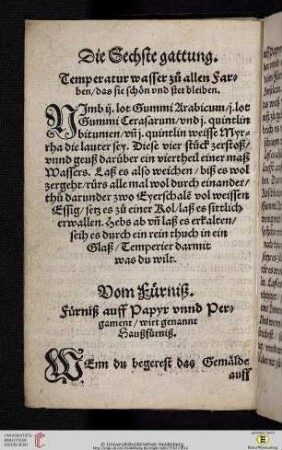 Die Sechste gattung.
Temperatur wasser zů allen Far⸗
ben / das sie schön vnd stet bleiben.
NImb ij. lot Gummi Arabicum / j. lot
Gummi Cerasarum / vnd j. quintlin
bitumen / vñ j. quintlin weisse Myr⸗
rha die lauter sey. Diese vier stück zerstoß /
vnnd geuß darüber ein viertheil einer maß
Wassers. Laß es also weichen / biß es wol
zergeht / rürs alle mal wol durch einander /
thů darunder zwo Eyerschalē vol weissen
Essig / setz es zů einer Kol / laß es sittlich
erwallen. Hebs ab vñ laß es erkalten /
seih es durch ein rein thuch in ein
Glaß / Temperier darmit
was du wilt.
Vom Fürniß.
Fürniß auff Papyr vnnd Per⸗
gament / wirt genannt
Haußfürniß.
WEnn du begerest das Gemälde
auff
UNIVERSITÄTS-
BIBLIOTHEK
HEIDELBERG
© Universitätsbibliothek Heidelberg